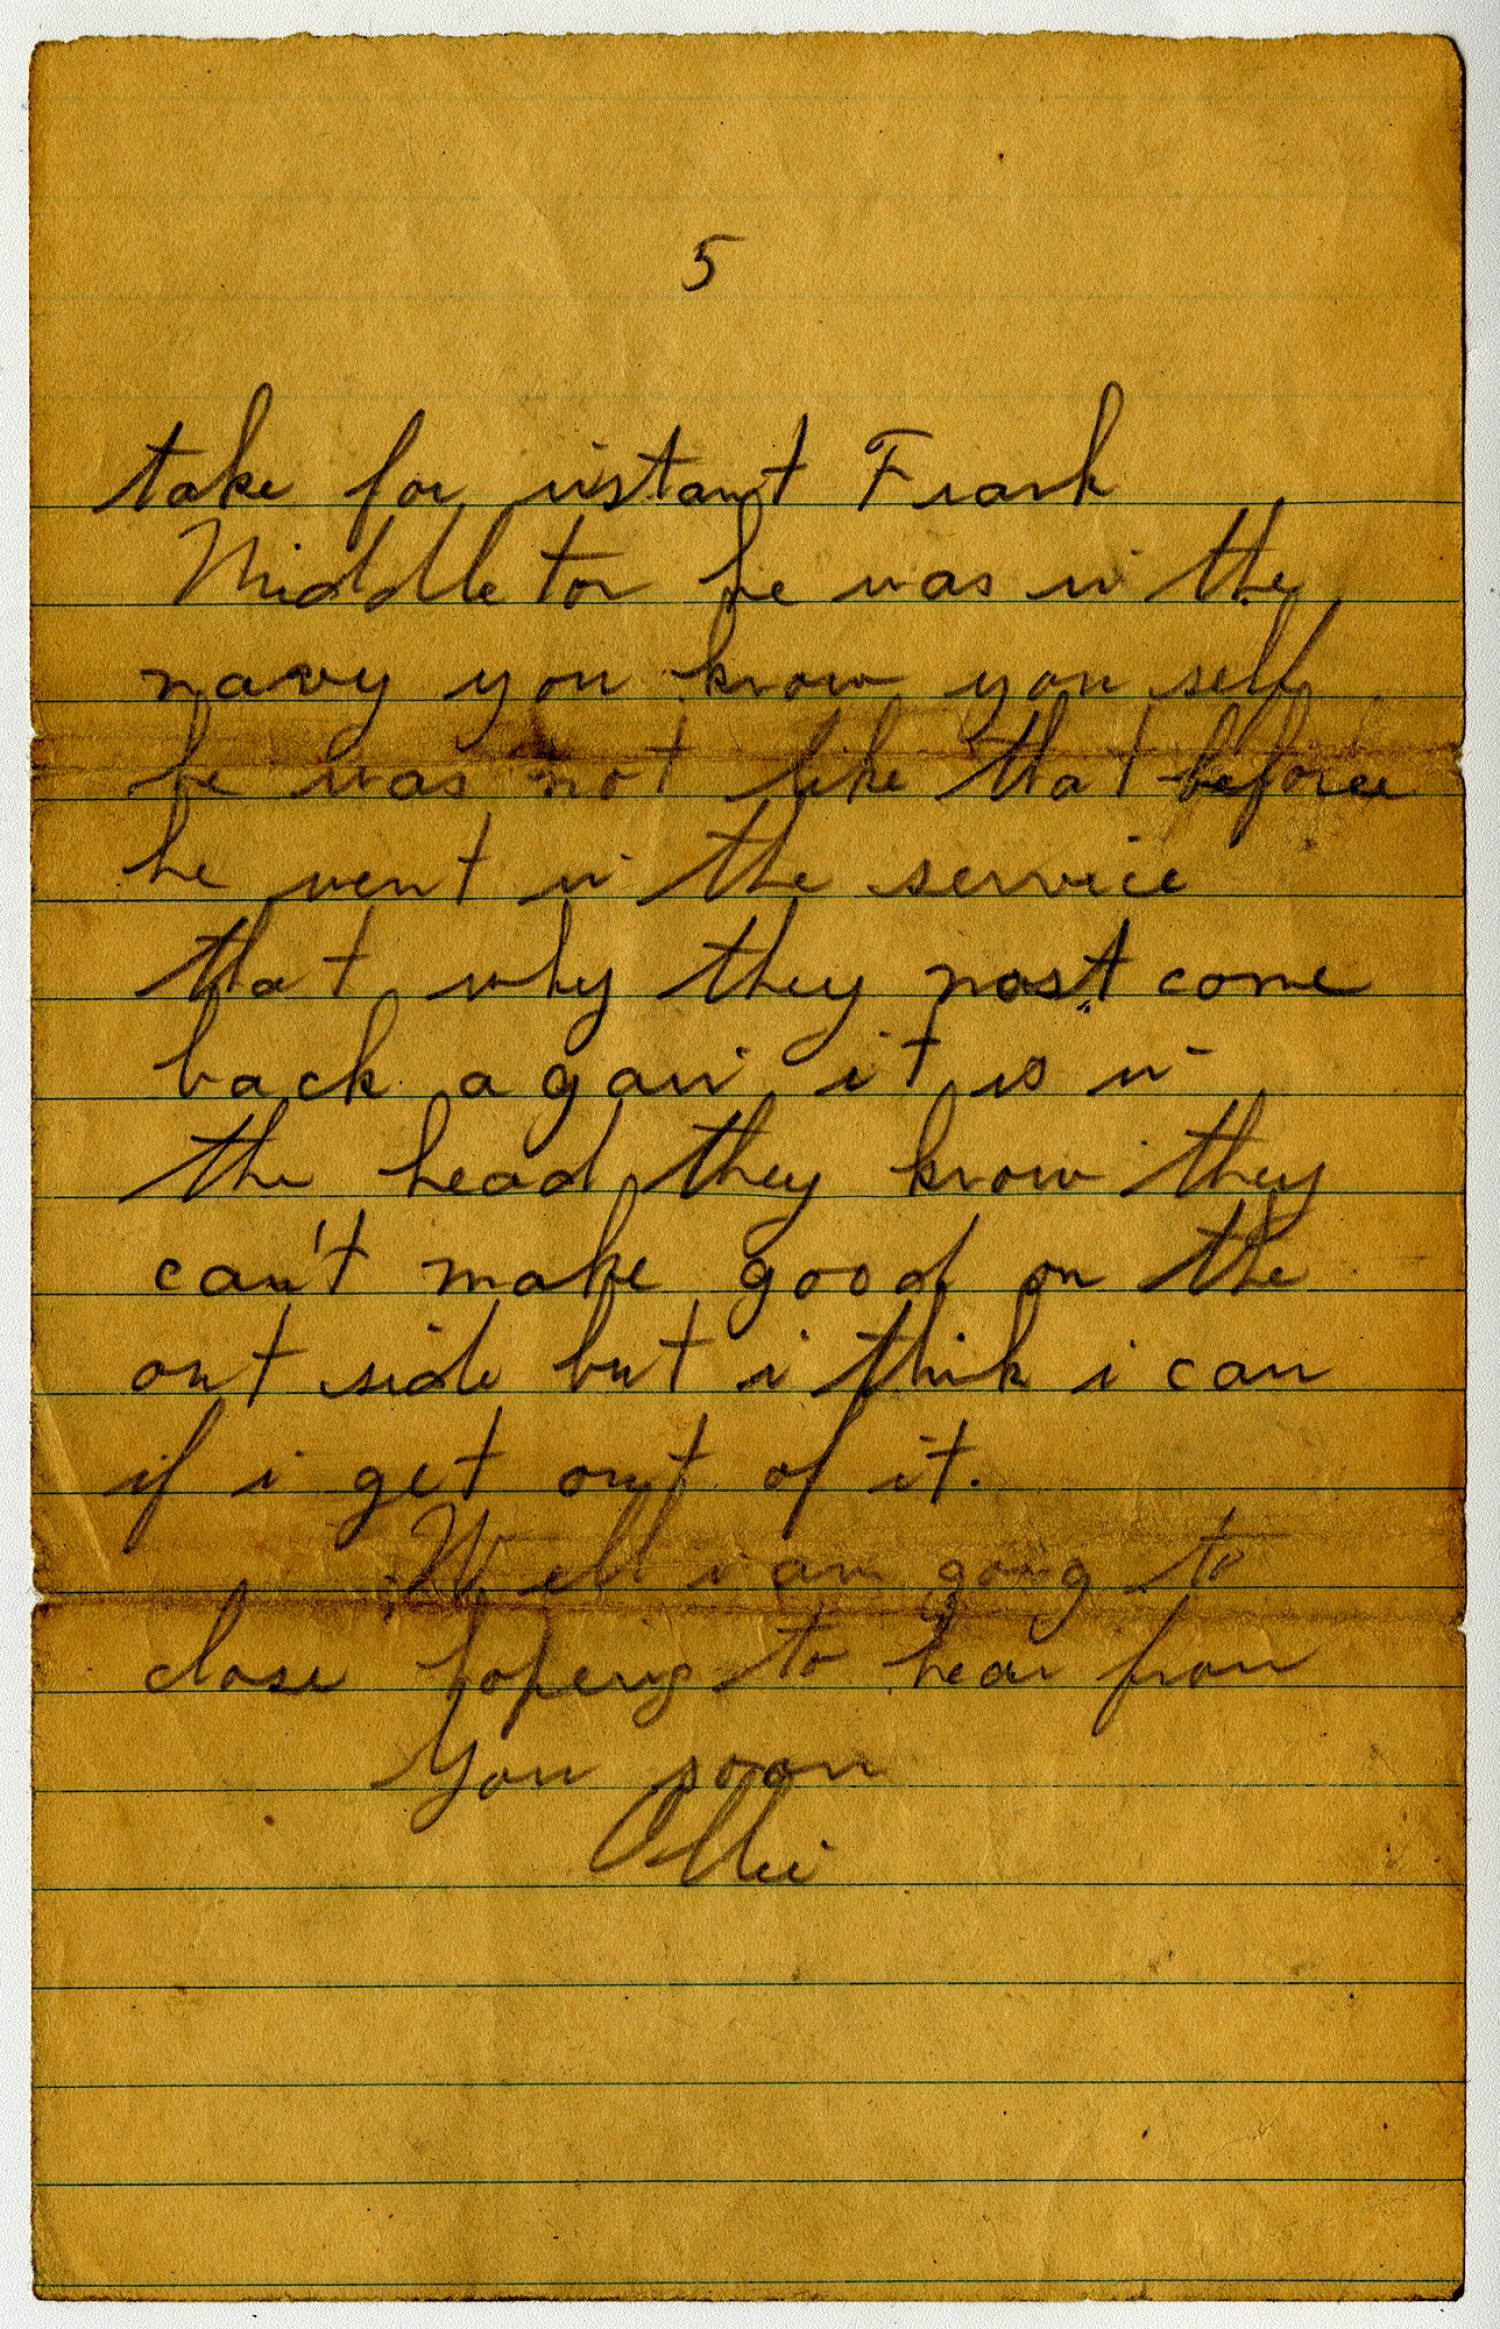 5
take for instant Frank
Middleton he was in the
navy you know you self
he was not like that before
he went in the service
that why they most come
back again it is in
the head they know they
can't make good on the
out side but i think i can
if i get out of it.
Well i am going to
close hopeing to hear from
You soon
Ollie